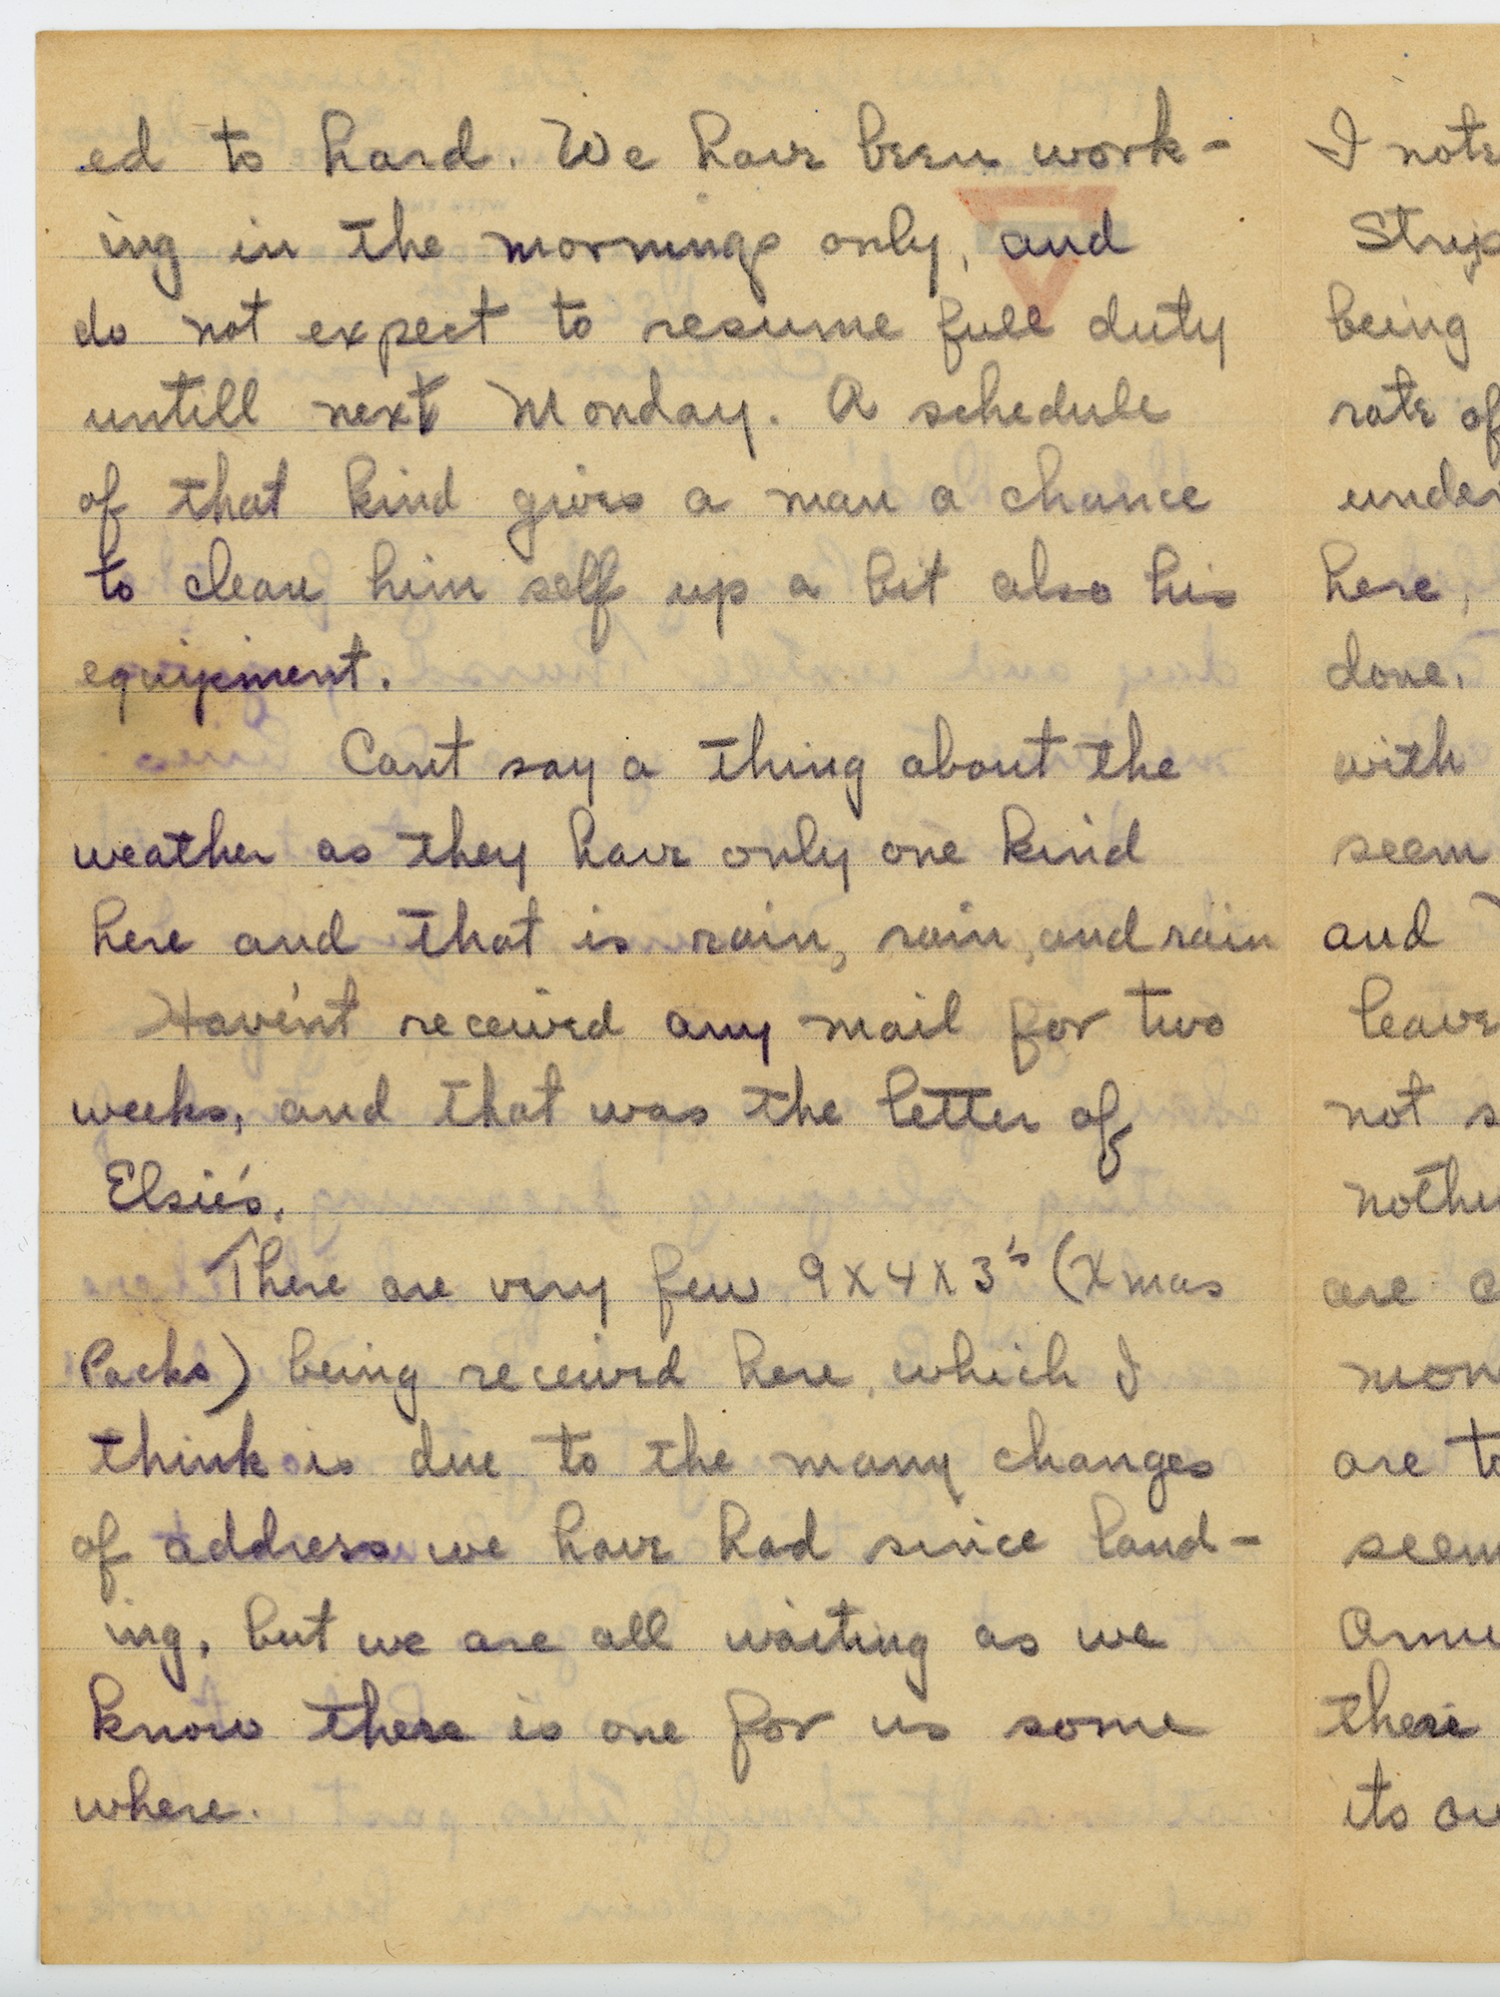 ed to hard. We have been work-
ing in the mornings only, and
do not expect to resume full duty
untill next Monday. A schedule
of that kind gives a man a chance
to clean him self up a bit also his
equipment.
Cant say a thing about the
weather as they have only one kind
here and that is rain, rain, and rain
Have'nt received any mail for two
weeks, and that was the letter of
Elsie's.
There are very few 9X4X3's (Xmas
Packs) being received here, which I
think is due to the many changes
of address we have had since land-
ing, but we are all waiting as we
know there is one for us some
where.
I note
Strip
being
rate of
under
here,
done.
with
seem
and
leave
not s
nothi
are
mon
are to
seem
there
its